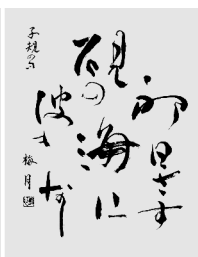 初日さす
硯の海に
波もなし
子規の句
梅月